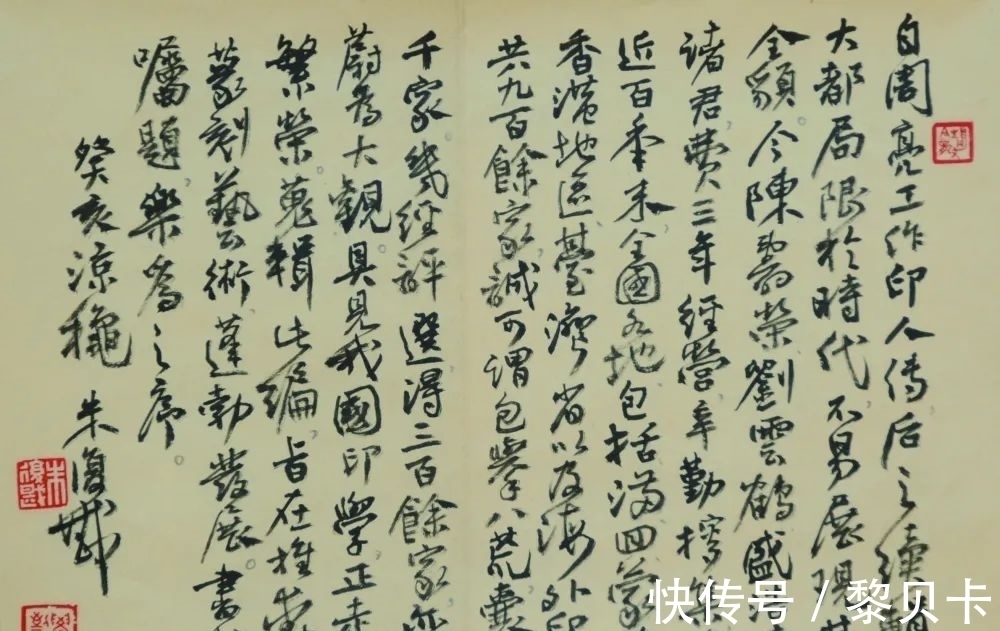 自周亮工作印人傳后之續
大都局限於時代不易展現
全貌今陳壽榮劉雲鶴盛
諸君費三年經營辛勤搜
近百年来全國各地包括滿四蒙
香港地區臺灣省以及海外印
共九百餘家誠可謂包舉八荒
千家幾經評選得三百餘家
蔚為大觀具見我國印學正
繁榮蒐輯此編旨在推
篆刻藝術蓬勃發展書
囑題樂為之序
癸亥涼秋 朱復戡
朱復戡
快传号 / 黎贝卡